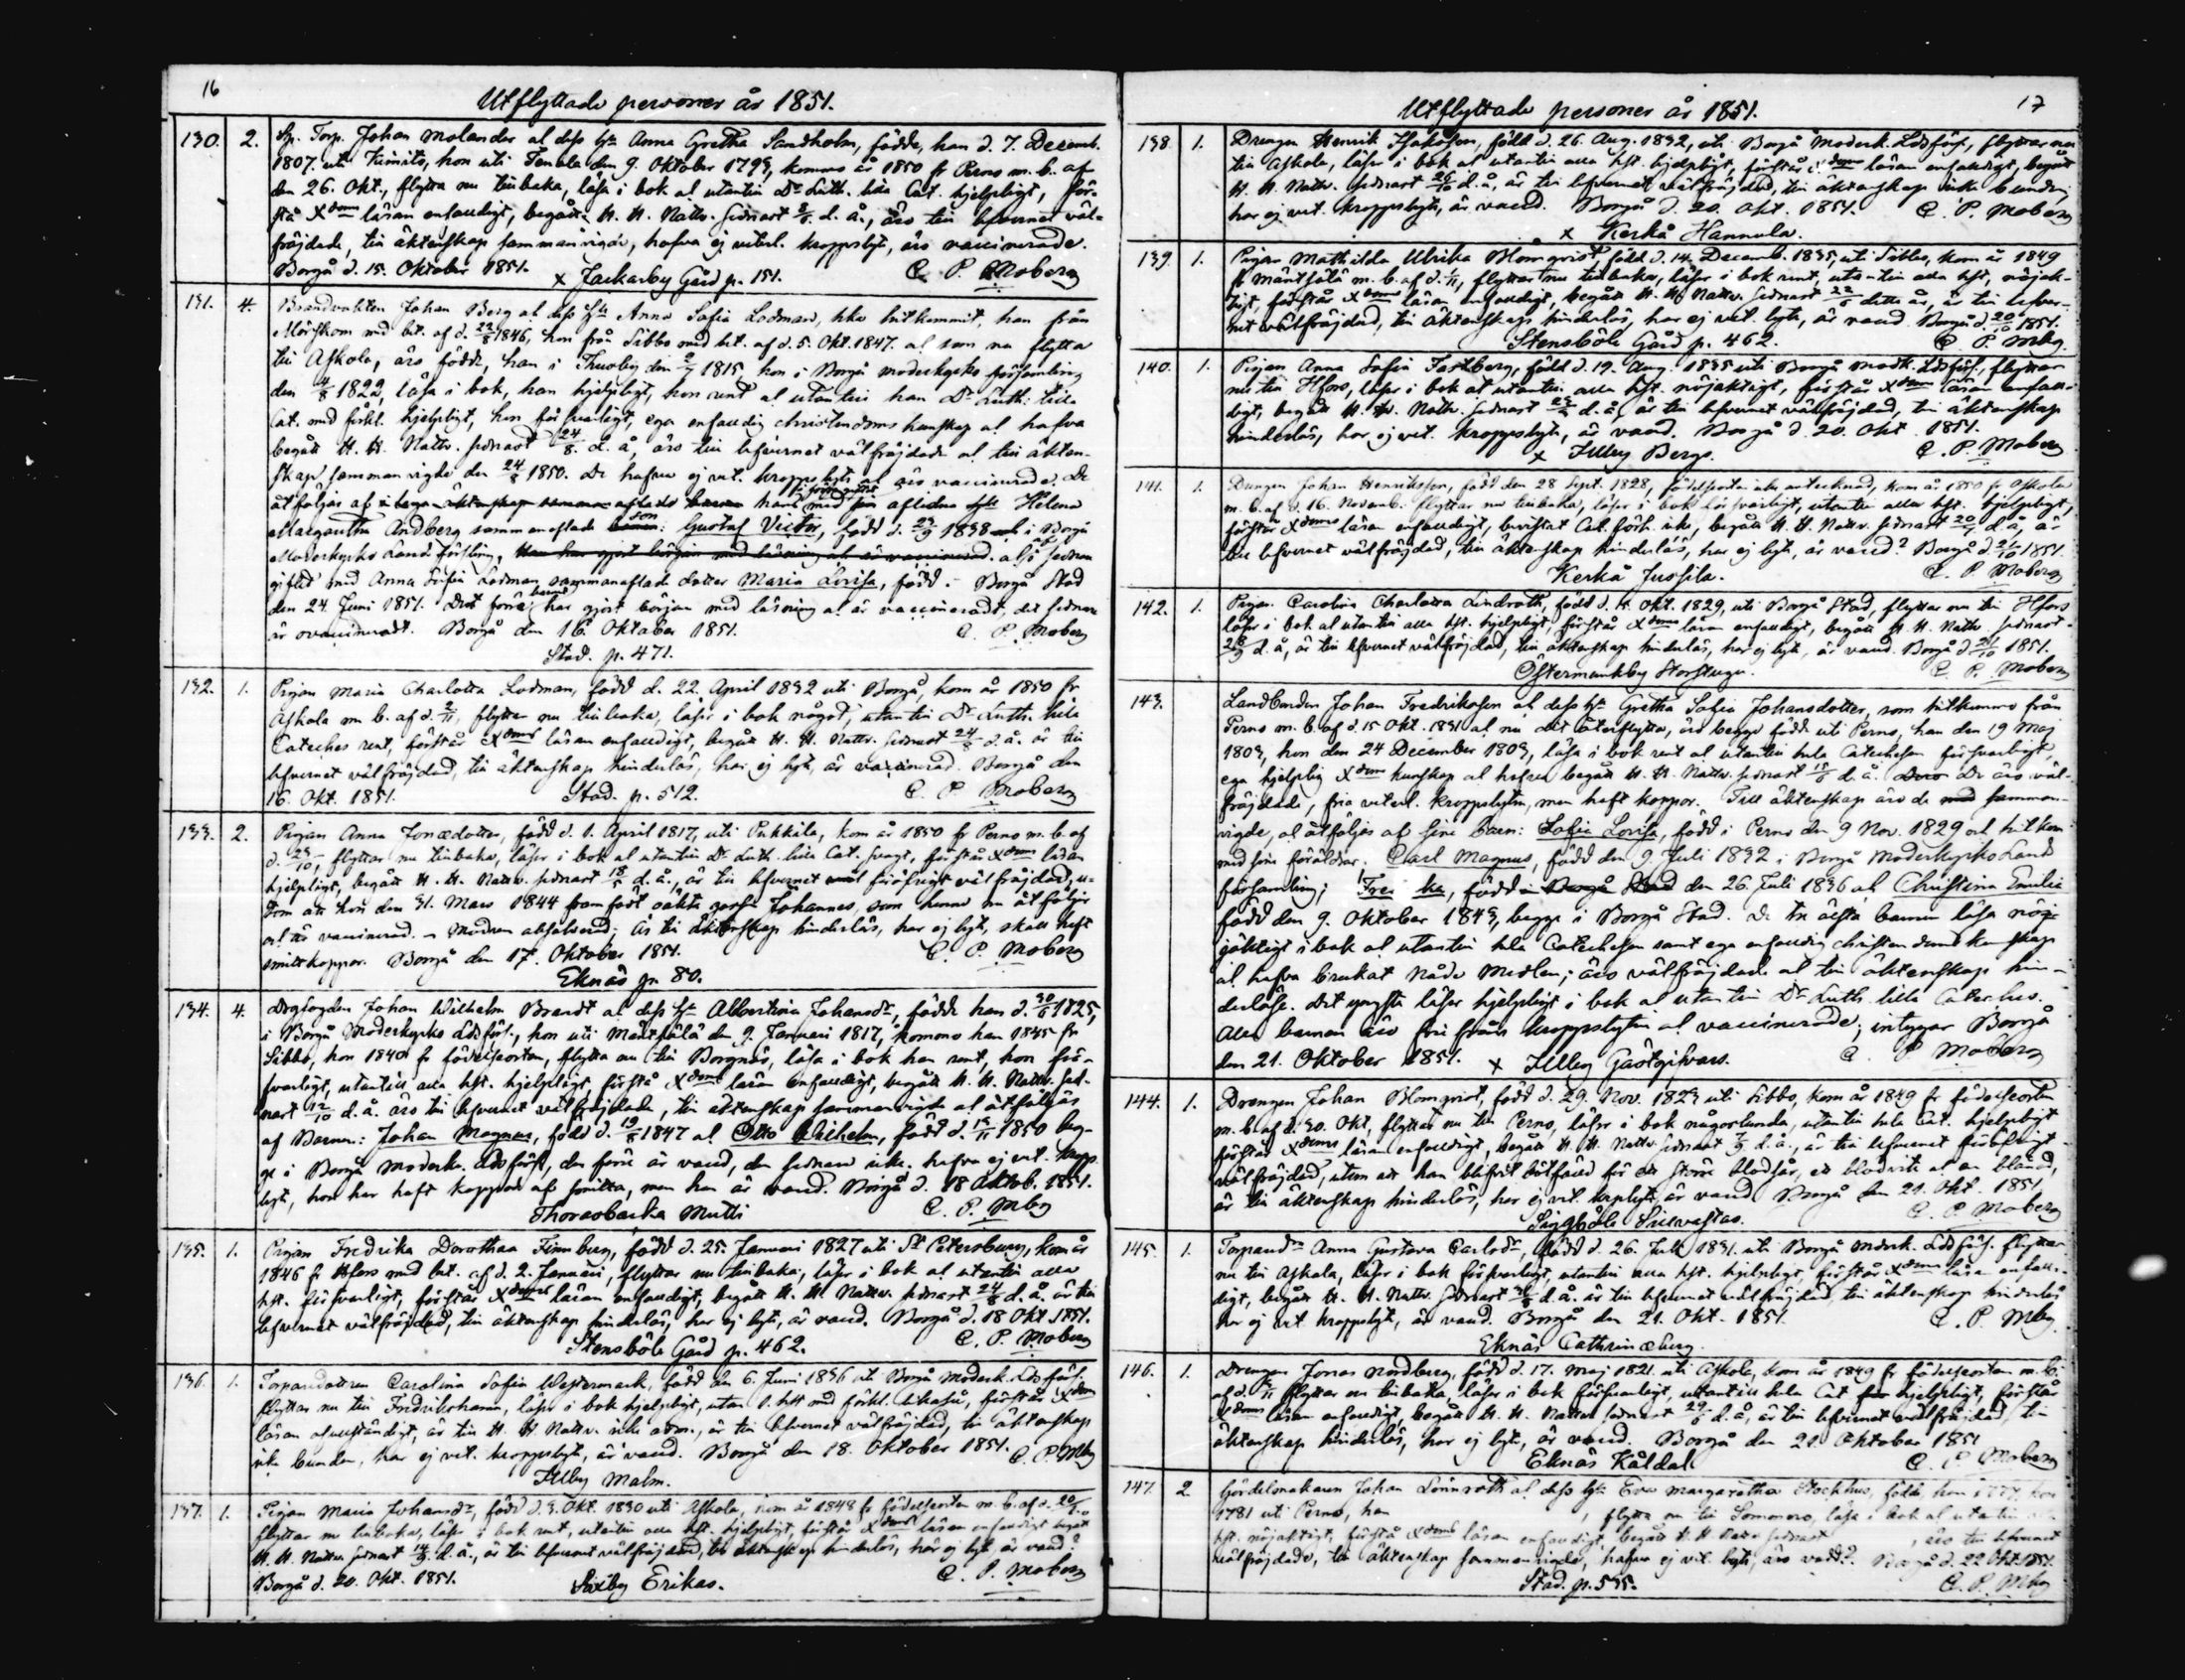 16
Utflyttade personer år 1851.
130. 2. Sp. Torp. Johan Molander at dess h. Anna Gretha Sandholm, födde, han d. 7. Decemb.
1807. uti Kimito, hon uti Tenala den 9. Oktober 1793, komma år 1850 fr Perno m. b. af
den 26. Okt., flytta nu tillbaka, läsa i bok at utantill Dr Luth. lilla Cat. hjelpligt, för-
stå Xdoms läran enfaldigt, begått H. H. Nattv. sednast d. å., äro till lefvernet väl-
fräjdade, till äktenskap sammanvigde, hafva ej veterl. kroppslyte, äro vaccinerade.
Borgå d. 15. Oktober 1851. x Jackarby Gård p. 151. C. P. Moberg
131. 4. Brandvakten Johan Berg at dess h. Anna Sofia Lodman, hitkommit, han från
Mörskom med bet. af d. 1846, hon från Sibbo med bet. af d. 5. Okt. 1847. at som nu flytta
till Askola, äro födde, han i Thusby den 1815, hon i Borgå moderkyrko församling
den 1822, läsa i bok, han hjelpligt, hon rent at utantill han Dr Luth. lilla
Cat. med förkl. hjelpligt, hon försvarligt, ega enfaldig christendoms kunskap at hafva
begått H. H. Nattv. sednast 24/8 d. å., äro till lefvernet välfräjdade at till äkten-
skap sammanvigde den 1850. De hafva ej vet. kroppslyte at äro vaccinerade. De
åtföljas af hans med aflidna Helena
Margaretha Andberg sammanaflade son: Gustaf Victor, född d. 1838 i Borgå
Moderkyrko Lands Försling, sednare
giftet med Anna Sofia Lodman sammanaflade dotter Maria Lovisa, född i Borgå Stad
den 24. Juni 1851. Det förra barnet har gjort början med läsning at är vaccineradt, det sednare
är ovaccineradt. Borgå den 16. Oktober 1851. C. P. Moberg
Stad. p. 471.
132. 1. Pigan Maria Charlotta Lodman, född d. 22. April 1832 uti Borgå, kom år 1850 fr
Askola m. b. af d. flyttar nu tillbaka, läser i bok något, utantill Dr Luth. lilla
Cateches rent, förstår Xdoms läran enfaldigt, begått H. H. Nattv. sednast d. å. är till
lefvernet välfräjdad, till äktenskap hinderlös, har ej lyte, är vaccinerad. Borgå den
16. Okt. 1851. Stad. p. 512. C. P. Moberg
133. 2. Pigan Anna Jonædotter, född d. 1. April 1817, uti Pukkila, kom år 1850 fr Perno m. b. af
d. flyttar nu tillbaka, läser i bok at utantill Dr Luth. lilla Cat. svagt, förstår Xdoms läran
hjelpligt, begått H. H. Nattv. sednast d. å., är till lefvernet föröfrigt välfräjdad, u-
tom att hon den 31. Mars 1844 framfödt oäkta gosse Johannes, som henne nu åtföljer
och är vaccinerad. Modren absolverad; är till äktenskap hinderlös, har ej lyte, skall haft
smittkoppor. Borgå den 17. Oktober 1851. C. P. Moberg
Eknäs p. 80.
134. 4. Johan Wilhelm Brandt at dess h. Albertina Johansdr, födde han d. 1825,
i Borgå Moderkyrko Ldsförs., hon uti Mäntsälä den 9. Januari 1817, komma han 1845 fr
Sibbo, hon 1840 fr födelseorten, flytta nu till Borgnäs, läsa i bok han rent, hon för-
svarligt, utantill alla hst. hjelpligt, förstå Xdoms läran enfaldigt, begått H. H. Nattv. sed-
nast 12/10 d. å. äro till lefvernet välfräjdade, till äktenskap sammanvigde at åtföljas
af Barnen: Johan Magnus, född d. 1847 at Otto Wilhelm, född d. 1850 beg-
ge i Borgå moderk. Ldsförs, den förra är vaccd, den sednare icke. hafva ej vet. kropps
lyte, hon har haft koppor af smitta, men han är vaccd. Borgå d. 18 Oktob. 1851.
Thorasbacka Matti C. P. Mbg
135. 1. Pigan Fredrika Dorothea Finnberg, född d. 25. Januari 1827 uti St Petersburg, kom år
1846 fr Hfors med bet. af d. 2. Januari, flyttar nu tillbaka, läser i bok at utantill alla
hst. försvarligt, förstår Xdoms läran enfaldigt, begått H. H. Nattv. sednast d. å. är till
lefvernet välfräjdad, till äktenskap hinderlös, har ej lyte, är vaccd. Borgå d. 18 Okt 1851.
Stensböle Gård p. 462. C. P. Moberg
136. 1. Torparedottren Carolina Sofia Westermark, född den 6. Juni 1836 uti Borgå Moderk. Lds förs.
flyttar nu till Fredrikshamn, läser i bok hjelpligt, utan 1. hst med förkl. likaså, förstår Xdoms
läran oförståndigt, är till H. H. Nattv. icke adm., är till lefvernet välfräjdad, till äktenskap
icke bunden, har ej vet. kroppslyte, är vaccd. Borgå den 18. Oktober 1851. C. P. Mbg
Illby Malm.
137. 1. Pigan Maria Johansdr, född d. 3. Okt. 1830 uti Askola, kom år 1848 fr födelseorten m. b. af d.
flyttar nu tillbaka, läser i bok rent, utantill alla hst. hjelpligt, förstår Xdoms läran enfaldigt begått
H. H. Nattv. sednast d. å., är till lefvernet välfräjdad, till äktenskap hinderlös, har ej lyte är vaccd?
Borgå d. 20. Okt. 1851. Saxby Erikas. C. P. Moberg
17
Utflyttade personer år 1851.
138. 1. Drengen Henrik Isaksson, född d. 26. Aug. 1832, uti Borgå Moderk. Ldsförs., flyttar nu
till Askola, läser i bok at utantill alla hst. hjelpligt, förstår Xdoms läran enfaldigt, begått
H. H. Nattv. sednast d. å., är till lefvernet välfräjdad, till äktenskap icke bunden,
har ej vet. kroppslyte, är vaccd. Borgå d. 20. Okt. 1851. C. P. Moberg
x Kerkå Hannula.
139. 1. Pigan Mathilda Ulrika Blomqvist, född d. 14. Decemb. 1835, uti Sibbo, kom år 1849
fr Mäntsälä m. b. af d. flyttar nu tillbaka, läser i bok rent, utantill alla hst, nöjak-
tigt, förstår Xdoms läran enfaldigt, begått H. H. Nattv. sednast detta år, är till lefver-
net välfräjdad, till äktenskap hinderlös, har ej vet. lyte, är vaccd. Borgå d. 20/10 1851.
Stensböle Gård p. 462. C. P. Mbg.
140. 1. Pigan Anna Sofia Fastberg, född d. 19. Aug. 1835 uti Borgå modk. Ldsförs, flyttar
nu till Hfors, läser i bok at utantill alla hst. nöjaktigt, förstår Xdoms läran enfal-
digt, begått H. H. Nattv. sednast d. å. är till lefvernet välfräjdad, till äktenskap
hinderlös, har ej vet. kroppslyte, är vaccd. Borgå d. 20. Okt. 1851.
x Illby Bergs. C. P. Moberg
141. 1. Drengen Johan Henriksson, född den 28 Sept. 1828, födelseorten icke antecknad, kom år 1850 fr Askola
m. b. af d. 16. Novemb. flyttar nu tillbaka, läser i bok försvarligt, utantill alla hst. hjelpligt,
förstår Xdoms läran enfaldigt, bevistat Cat. förh. icke, begått H. H. Nattv. sednast d. å, är
till lefvernet välfräjdad, till äktenskap hinderlös, har ej lyte, är vaccd? Borgå d. 21/10 1851.
Kerkå Jussila. C. P. Moberg
142. 1. Pigan Carolina Charlotta Lindroth, född d. Okt. 1829, uti Borgå Stad, flyttar nu till Hfors
läser i bok at utantill alla hst. hjelpligt, förstår Xdoms läran enfaldigt, begått H. H. Nattv. sednast
28/9 d. å, är till lefvernet välfräjdad, till äktenskap hinderlös, har ej lyte, är vaccd. Borgå d. 21/10 1851.
Östermunkby Storstugu. C. P. Moberg
143. Landbonden Johan Fredriksson at dess h. Gretha Sofia Johansdotter, som hitkommo från
Perno m. b. af d. 15 Okt. 1831 at nu dit återflytta, äro begge födde uti Perno, han den 19 Maj
1803, hon den 24 December 1803, läsa i bok rent at utantill hela Catechesen försvarligt,
ega hjelplig Xdoms kunskap at hafva begått H. H. Nattv. sednast d. å. De äro väl-
fräjdade, fria veterl. kroppslyten, men haft koppor. Till äktenskap äro de samman-
vigde, at åtföljas af sine barn: Sofia Lovisa, född i Perno den 9 Nov. 1829 och hitkom
med sine föräldrar. Carl Magnus, född den 9. Juli 1832 i Borgå Moderkyrko Lands
församling; född den 26. Juli 1836 at Christina Emilia
född den 9. Oktober 1843, begge i Borgå Stad. De tre älsta barnen läsa nöj-
aktigt i bok at utantill hela Catechesen samt ega enfaldig christendoms kunskap
at hafva brukat Nåde Medlen; äro välfräjdade at till äktenskap hin-
derlöse. Det yngsta läser hjelpligt i bok at utantill Dr Luth. lilla Cateches.
Alla barnen äro fria från kroppslyten at vaccinerade; intygar Borgå
den 21. Oktober 1851. x Illby Gästgifvars. C. P. Moberg
144. 1. Drengen Johan Blomqvist, född d. 29. Nov. 1823 uti Sibbo, kom år 1849 fr födelseorten
m. b. af d. 30. Okt, flyttar nu till Perno, läser i bok någorlunda, utantill hela Cat. hjelpligt
förstår Xdoms läran enfaldigt, begått H. H. Nattv. sednast d. å., är till lefvernet föröfrigt
välfräjdad, utom att han blifvit bötfäld för större blodsår, ett blodvite at en blånad,
är till äktenskap hinderlös, har ej vet. kroplyte, är vaccd. Borgå den 21. Okt. 1851.
C. P. Moberg
145. 1. Torpardr Anna Gustava Carlsdr, född d. 26. Juli 1831. uti Borgå moderk. Ldsförs. flyttar
nu till Askola, läser i bok försvarligt, utantill alla hst. hjelpligt, förstår Xdoms läran enfal-
digt, begått H. H. Nattv. sednast d. å. är till lefvernet välfräjdad, till äktenskap hinderlös
har ej vet kroppslyte, är vaccd. Borgå den 21. Okt. 1851. C. P. Mbg
Eknäs Cathrinæberg.
146. 1. Drengen Jonas Nordberg, född d. 17. Maj 1821. uti Askola, kom år 1849 fr födelseorten m. b.
af d. flyttar nu tillbaka, läser i bok försvarligt, utantill hela Cat hjelpligt, förstår
Xdoms läran enfaldigt, begått H. H. Nattv. sednast d. å, är till lefvernet välfräjdad, till
äktenskap hinderlös, har ej lyte, är vaccd. Borgå den 21. Oktober 1851
Eknäs Kåldal C. P. Moberg
147. 2 Gördelmakaren Johan Lönnroth at dess h. Eva Margaretha födde, han 1777, hon
1781 uti Perno, han , flytta nu till Sommero, läsa i bok at utantill
hst. nöjaktigt, förstå Xdoms läran enfaldigt, begått H. H. Nattv. sednast , äro till lefvernet
välfräjdade, till äktenskap sammanvigde, hafva ej vet. lyte, äro vaccd?. Borgå d. 22 Okt. 1851.
Stad. p. 535. C. P. Mbg